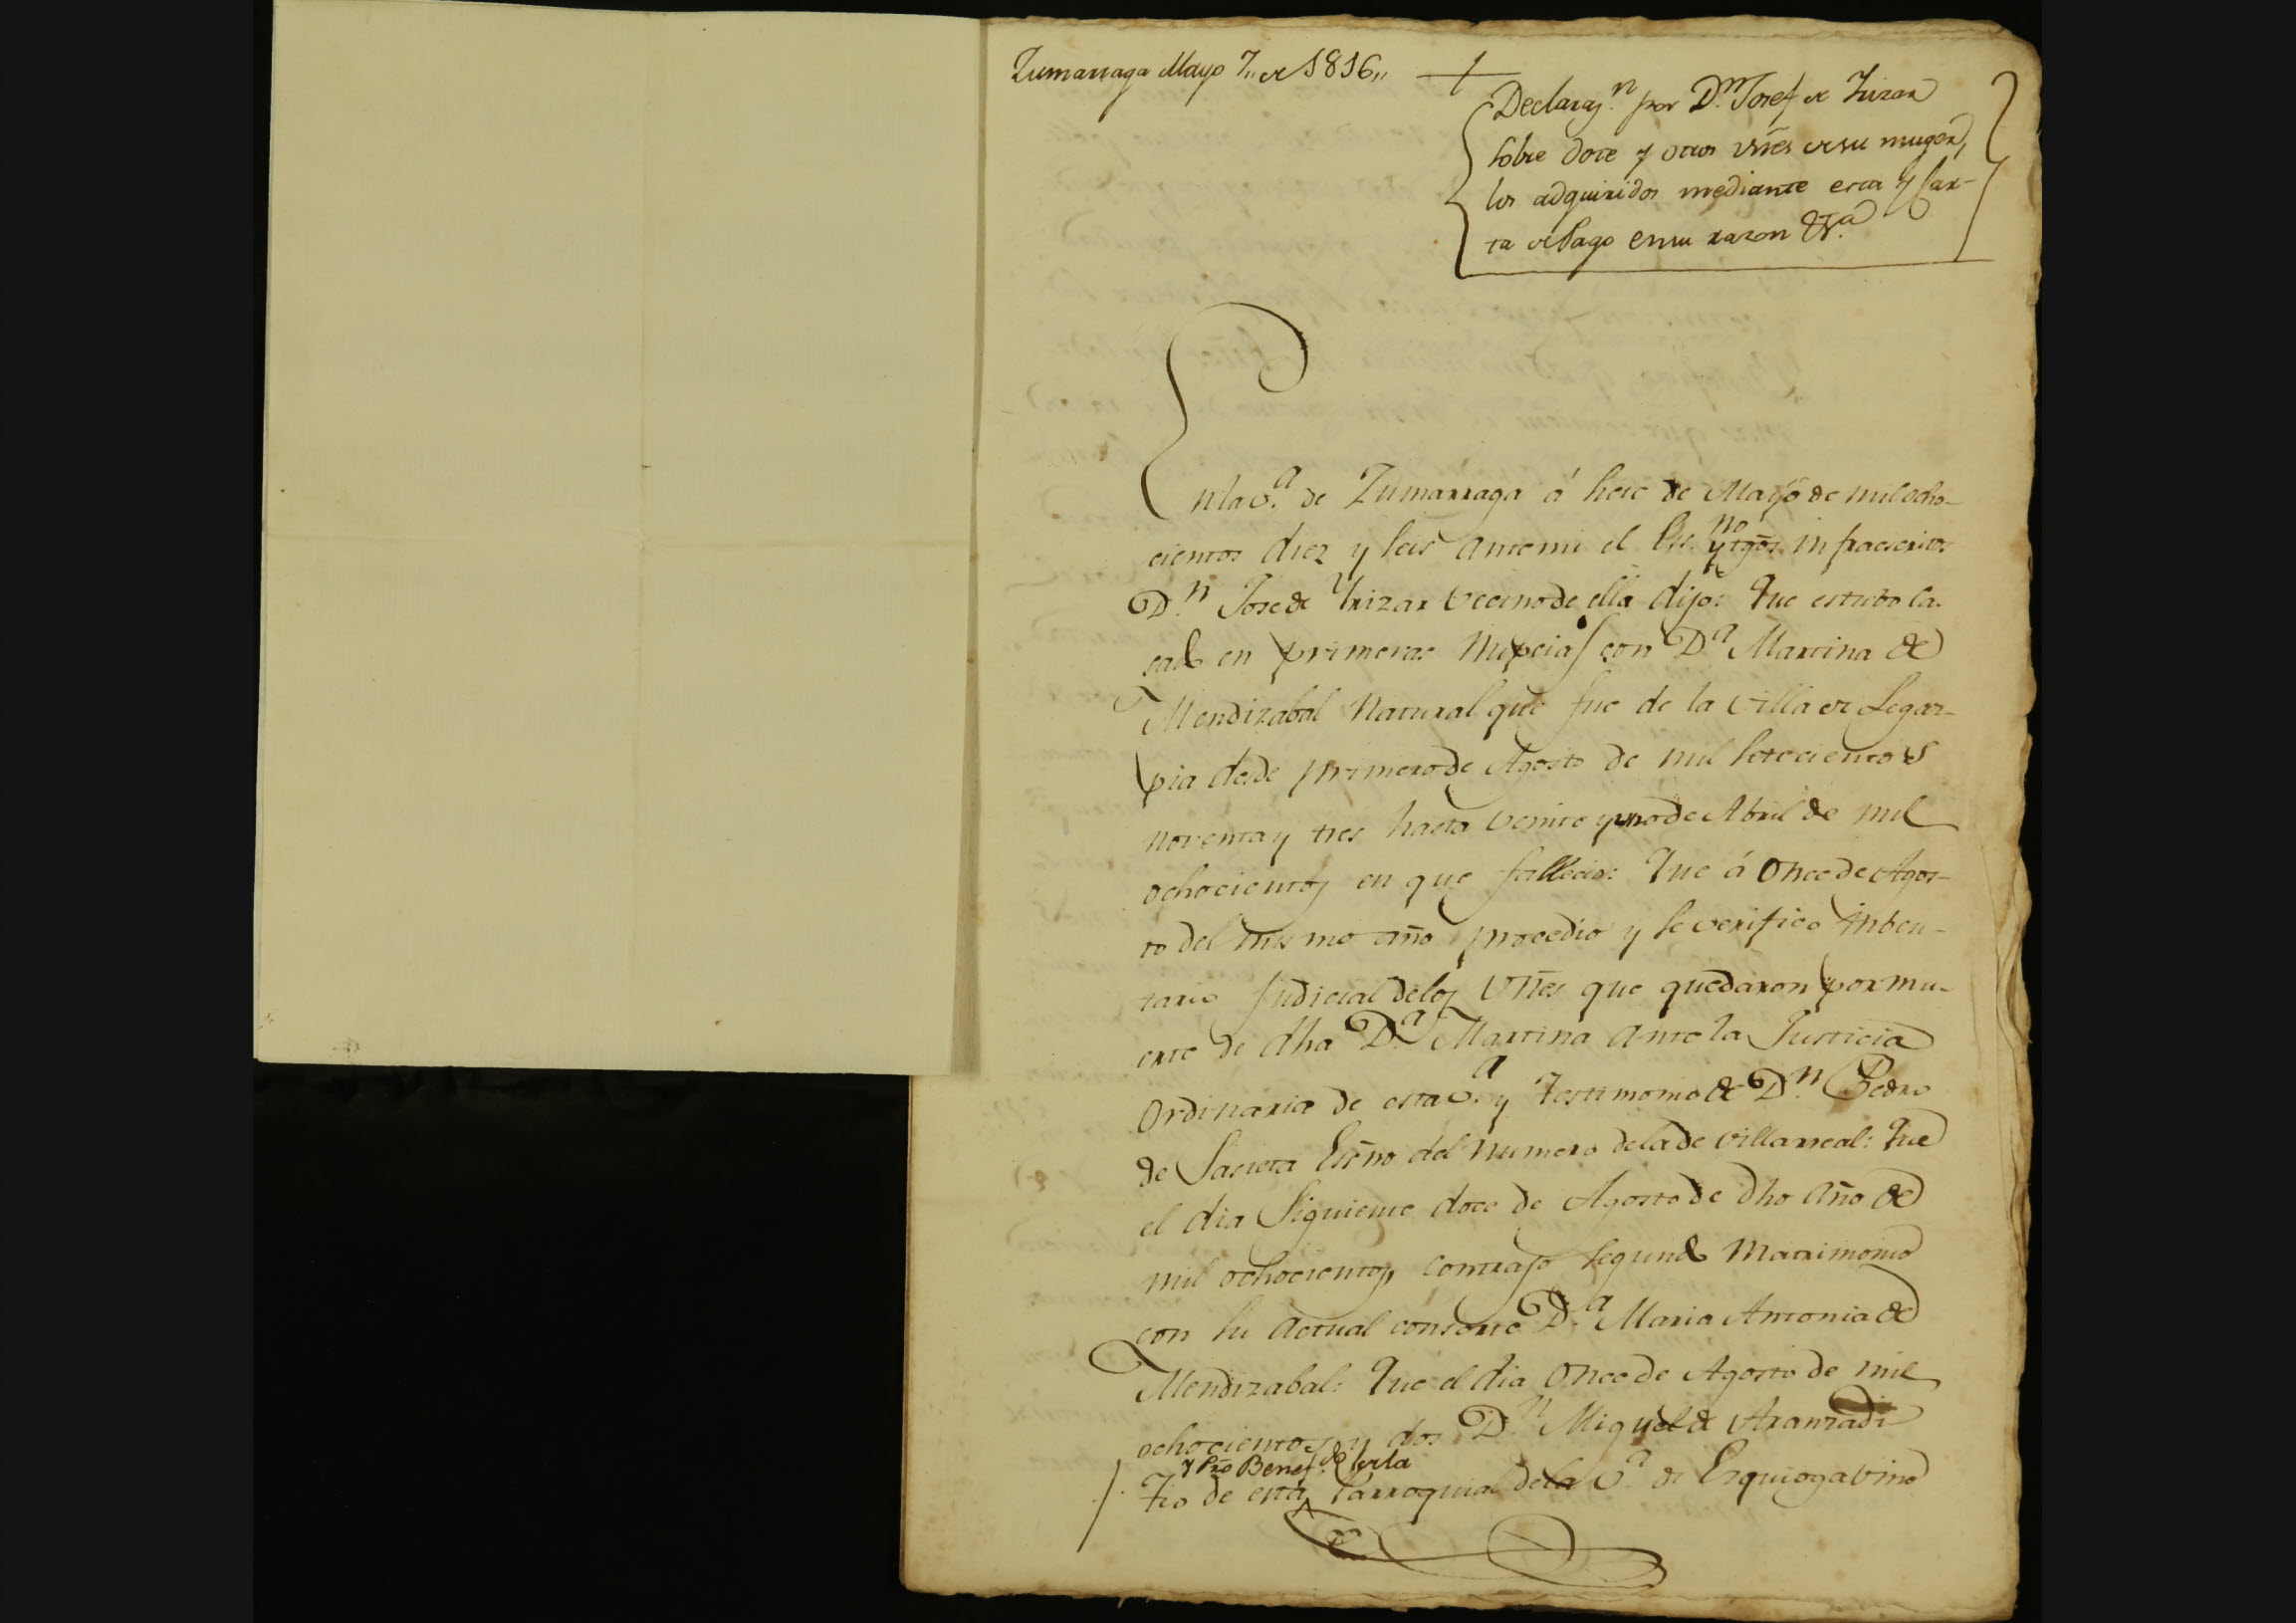 Zumarraga Mayo 7,, de 1816,,
Declaraz.n por D.n Josef de Yrizar
sobre dote y otros vnes de su muger,
los adquiridos mediante esta y Car-
ta de Pago en su razon &.a
En la V.a de Zumarraga á siete de Mayo de mil ocho-
cientos diez y seis ante mi el Es.no y tgos infraescritos
D.n Jose de Yrizar vecino de ella dijo: Que estubo ca-
sado en primeras Nupcias con D.a Martina de
Mendizabal Natural que fue de la Villa de Legaz-
pia desde primero de Agosto de mil setecientos
noventa y tres hasta veinte y uno de Abril de mil
ochocientos en que fallecio: Que á Once de Agos-
to del mismo año procedio y se verifico inben-
tario Judicial de los Vnes que quedaron por mu-
erte de dha D.a Martina ante la Justicia
Ordinaria de esta V.a y Testimonio de D.n Pedro
de Sasieta Esno del Numero de la de Villarreal: Que
el dia siguiente doce de Agosto de dho Año de
mil ochocientos, contrajo segundo Matrimonio
con su actual consorte D.a Maria Antonia de
Mendizabal: Que el dia Once de Agosto de mil
ochocientos y dos D.n Miguel de Aranzadi
y Pro Benef.do de la
Tio de esta Parroquial de la V.a de Ezquioga vino